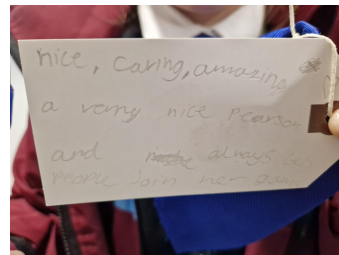 nice, caring, amazing
a very nice Pearson
and always lets
People Join her game